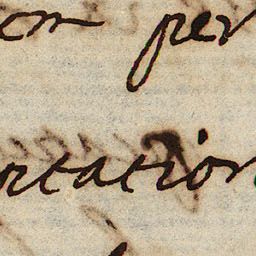 em per
ortation